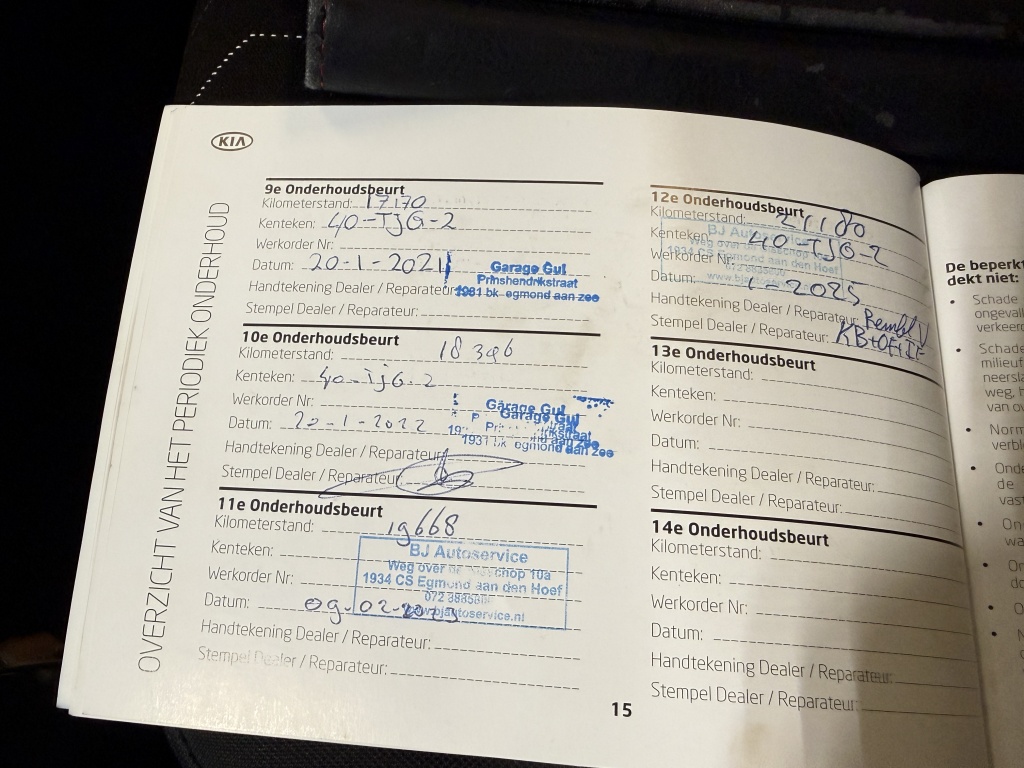 KIA
OVERZICHT VAN HET PERIODIEK ONDERHOUD
9e Onderhoudsbeurt
Kilometerstand: 17170
Kenteken: 40-TJG-2
Werkorder Nr:
Datum: 20-1-2021
Garage Gul
Prinshendrikstraat
1931 bk egmond aan zee
Handtekening Dealer / Reparateur:
Stempel Dealer / Reparateur:
10e Onderhoudsbeurt
Kilometerstand: 18396
Kenteken: 40-TJG-2
Werkorder Nr:
Garage Gul
Garage Gul
Datum: 20-1-2022
1931 bk egmond aan zee
Handtekening Dealer / Reparateur:
Stempel Dealer / Reparateur:
11e Onderhoudsbeurt
Kilometerstand: 19668
Kenteken:
BJ Autoservice
Weg over de 10a
Werkorder Nr:
1934 CS Egmond aan den Hoef
072
Datum: 09-02-
www.bjautoservice.nl
Handtekening Dealer / Reparateur:
Stempel Dealer / Reparateur:
12e Onderhoudsbeurt
Kilometerstand: 21180
Kenteken: 40-TJG-2
BJ Autoservice
Weg over de
1934 CS Egmond aan den Hoef
Werkorder Nr:
Datum: 2025
Handtekening Dealer / Reparateur:
Stempel Dealer / Reparateur:
13e Onderhoudsbeurt
Kilometerstand:
Kenteken:
Werkorder Nr:
Datum:
Handtekening Dealer / Reparateur:
Stempel Dealer / Reparateur:
14e Onderhoudsbeurt
Kilometerstand:
Kenteken:
Werkorder Nr:
Datum:
Handtekening Dealer / Reparateur:
Stempel Dealer / Reparateur:
15
De beperkt
dekt niet:
• Schade
ongeval
verkeerd
• Schade
milieuf
neersla
weg, h
van ov
• Norm
verbl
• Onde
de
vast
• On
wa